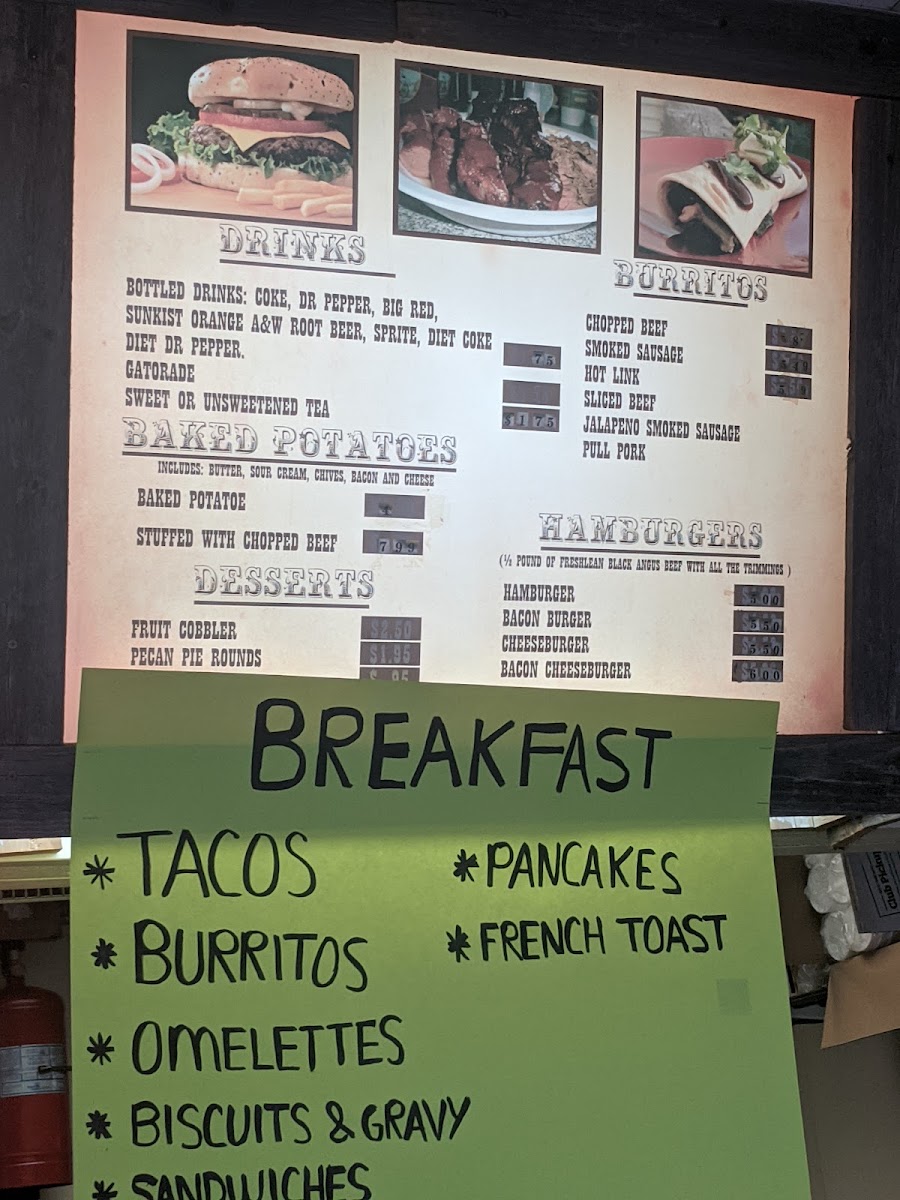 DRINKS
BOTTLED DRINKS: COKE, DR PEPPER, BIG RED,
SUNKIST ORANGE A&W ROOT BEER, SPRITE, DIET COKE
DIET DR PEPPER. 75
GATORADE
SWEET OR UNSWEETENED TEA $175
BAKED POTATOES
INCLUDES: BUTTER, SOUR CREAM, CHIVES, BACON AND CHEESE
BAKED POTATOE
STUFFED WITH CHOPPED BEEF 799
DESSERTS
FRUIT COBBLER $2.50
PECAN PIE ROUNDS $1.95
BURRITOS
CHOPPED BEEF
SMOKED SAUSAGE
HOT LINK
SLICED BEEF
JALAPENO SMOKED SAUSAGE
PULL PORK
HAMBURGERS
(½ POUND OF FRESHLEAN BLACK ANGUS BEEF WITH ALL THE TRIMMINGS )
HAMBURGER 500
BACON BURGER 550
CHEESEBURGER 550
BACON CHEESEBURGER 600
BREAKFAST
* TACOS
* BURRITOS
* OMELETTES
* BISCUITS & GRAVY
* SANDWICHES
* PANCAKES
* FRENCH TOAST